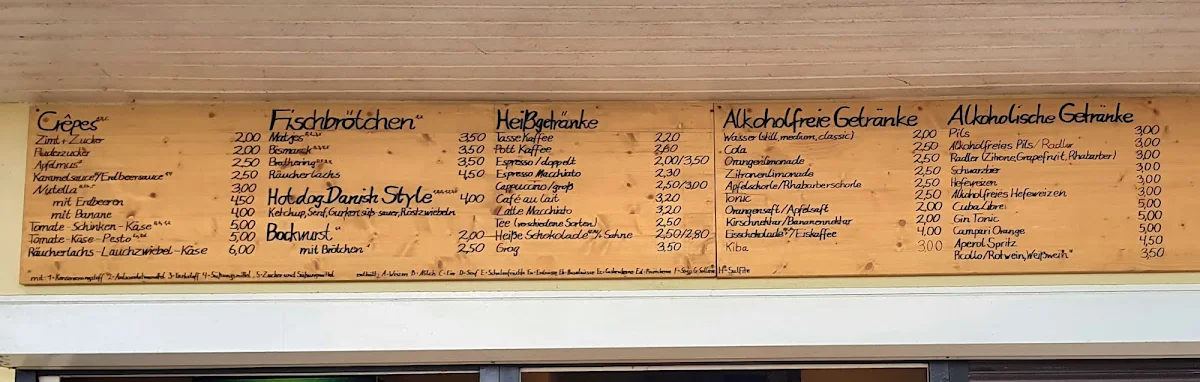 Crêpes
Zimt + Zucker 2,00
Puderzucker 2,00
Apfelmus 2,50
Karamelsauce/Erdbeersauce 2,50
Nutella 3,00
mit Erdbeeren 4,50
mit Banane 4,00
Tomate - Schinken - Käse 5,00
Tomate - Käse - Pesto 5,00
Räucherlachs - Lauchzwiebel - Käse 6,00
Fischbrötchen
Matjes 3,50
Bismarck 3,50
Brathering 3,50
Räucherlachs 4,50
Hotdog Danish Style 4,00
Ketchup, Senf, Gurken süß-sauer, Röstzwiebeln
Bockwurst 2,00
mit Brötchen 2,50
Heißgetränke
Tasse Kaffee 2,20
Pott Kaffee 2,80
Espresso/doppelt 2,00/3,50
Espresso Macchiato 2,30
Cappuccino/groß 2,50/3,00
Café au Lait 3,20
Latte Macchiato 3,20
Tee (verschiedene Sorten) 2,50
Heiße Schokolade/% Sahne 2,50/2,80
Grog 3,50
Alkoholfreie Getränke
Wasser (still, medium, classic) 2,00
Cola 2,50
Orangenlimonade 2,50
Zitronenlimonade 2,50
Apfelschorle/Rhabarberschorle 2,50
Tonic 2,50
Orangensaft/Apfelsaft 2,00
Kirschnektar/Bananennektar 2,00
Eisschokolade/Eiskaffee 4,00
Kiba 3,00
Alkoholische Getränke
Pils 3,00
Alkoholfreies Pils/Radler 3,00
Radler (Zitrone, Grapefruit, Rhabarber) 3,00
Schwarzbier 3,00
Hefeweizen 3,00
Alkoholfreies Hefeweizen 3,00
Cuba Libre 5,00
Gin Tonic 5,00
Campari Orange 5,00
Aperol Spritz 4,50
Picollo/Rotwein, Weißwein 3,50